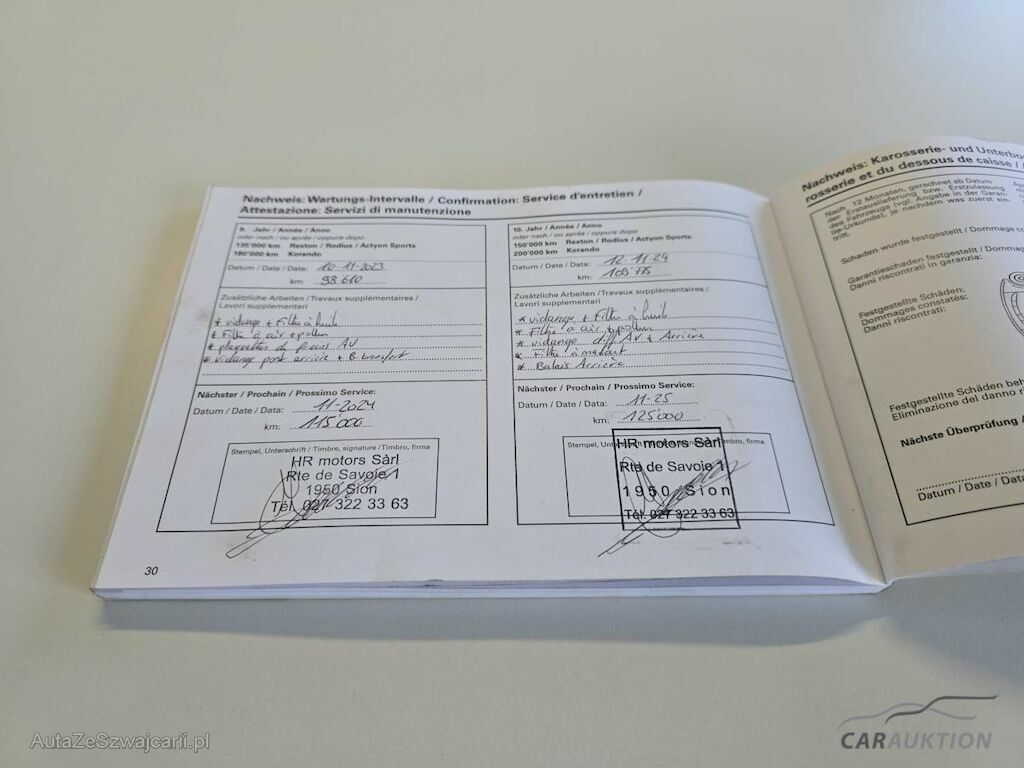 Nachweis: Wartungs-Intervalle / Confirmation: Service d'entretien /
Attestazione: Servizi di manutenzione
9. Jahr / Année / Anno
oder nach / ou après / oppure dopo
135'000 km Rexton / Rodius / Actyon Sports
180'000 km Korando
Datum / Date / Data: 10-11-2023
km: 98'610
Zusätzliche Arbeiten / Travaux supplémentaires /
Lavori supplementari
* vidange + Filtre à huile
* Filtre à air + pollen
* plaquettes de freins AV
* vidange pont arrière + B. transfert
Nächster / Prochain / Prossimo Service:
Datum / Date / Data: 11-2024
km: 115'000
Stempel, Unterschrift / Timbre, signature / Timbro, firma
HR motors Sàrl
Rte de Savoie 1
1950 Sion
Tél. 027 322 33 63
30
10. Jahr / Année / Anno
oder nach / ou après / oppure dopo
150'000 km Rexton / Rodius / Actyon Sports
200'000 km Korando
Datum / Date / Data: 12-11-24
km: 109'775
Zusätzliche Arbeiten / Travaux supplémentaires /
Lavori supplementari
* vidange + Filtre à huile
* Filtre à air + pollen
* vidange diff AV + Arrière
* Filtre à mazout
* Balais Arrière
Nächster / Prochain / Prossimo Service:
Datum / Date / Data: 11-25
km: 125'000
Stempel, Unterschrift / Timbre, signature / Timbro, firma
HR motors Sàrl
Rte de Savoie 1
1950 Sion
Tél. 027 322 33 63
Nachweis: Karosserie- und
rosserie et du dessous de caisse /
Nach 12 Monaten, gerechnet ab Datum
der Erstauslieferung bzw. Erstzulassung
des Fahrzeugs (vgl. Angabe in der Garan-
tie-Urkunde), je nachdem was zuerst ein-
tritt.
Schaden wurde festgestellt /
Garantieschaden festgestellt /
Danni riscontrati in garanzia:
Festgestellte Schäden:
Dommages constatés:
Danni riscontrati:
Festgestellte Schäden
Eliminazione del danno
Nächste Überprüfung /
Datum / Date / Data
AutaZeSzwajcarii.pl
CARAUKTION